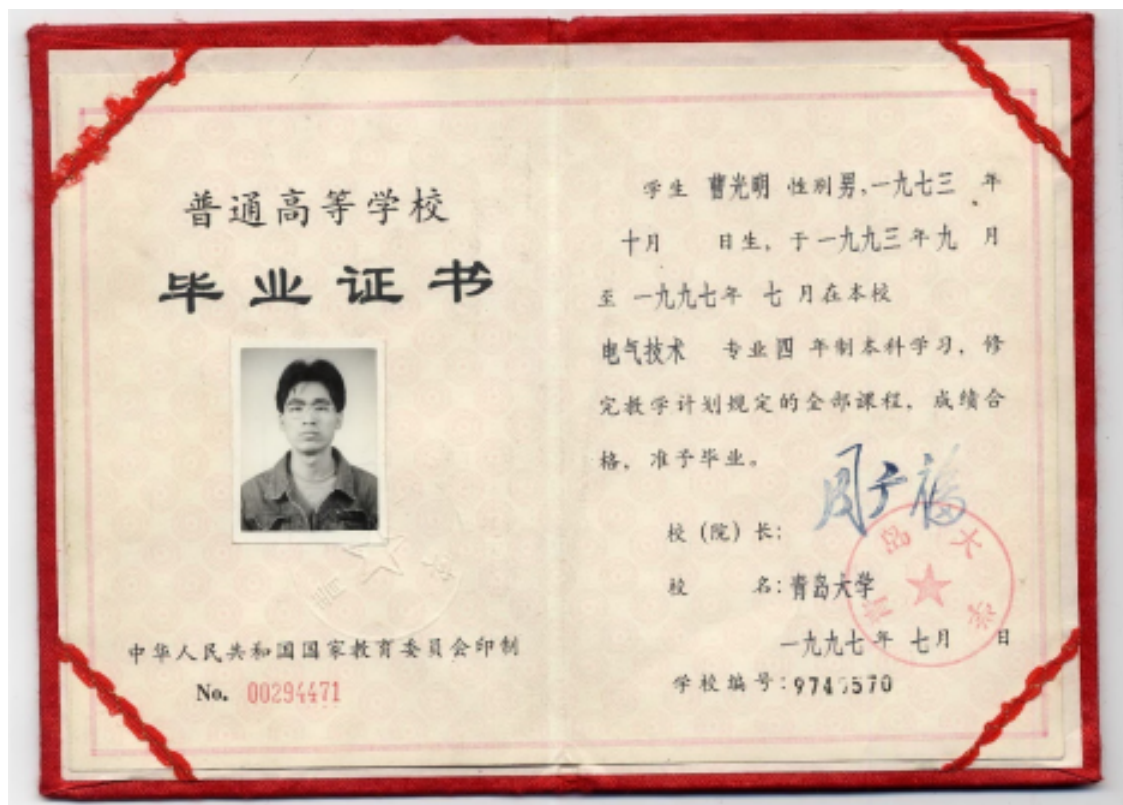 普通高等学校
毕业证书
中华人民共和国国家教育委员会印制
No. 00294471
学生 曹光明 性别 男,一九七三 年
十月 日生, 于一九九三年九 月
至 一九九七年 七 月在本校
电气技术 专业四 年制本科学习, 修
完教学计划规定的全部课程, 成绩合
格, 准予毕业。
校(院)长: 周广福
校 名:青岛大学
一九九七年 七月 日
学校编号:
青岛大学